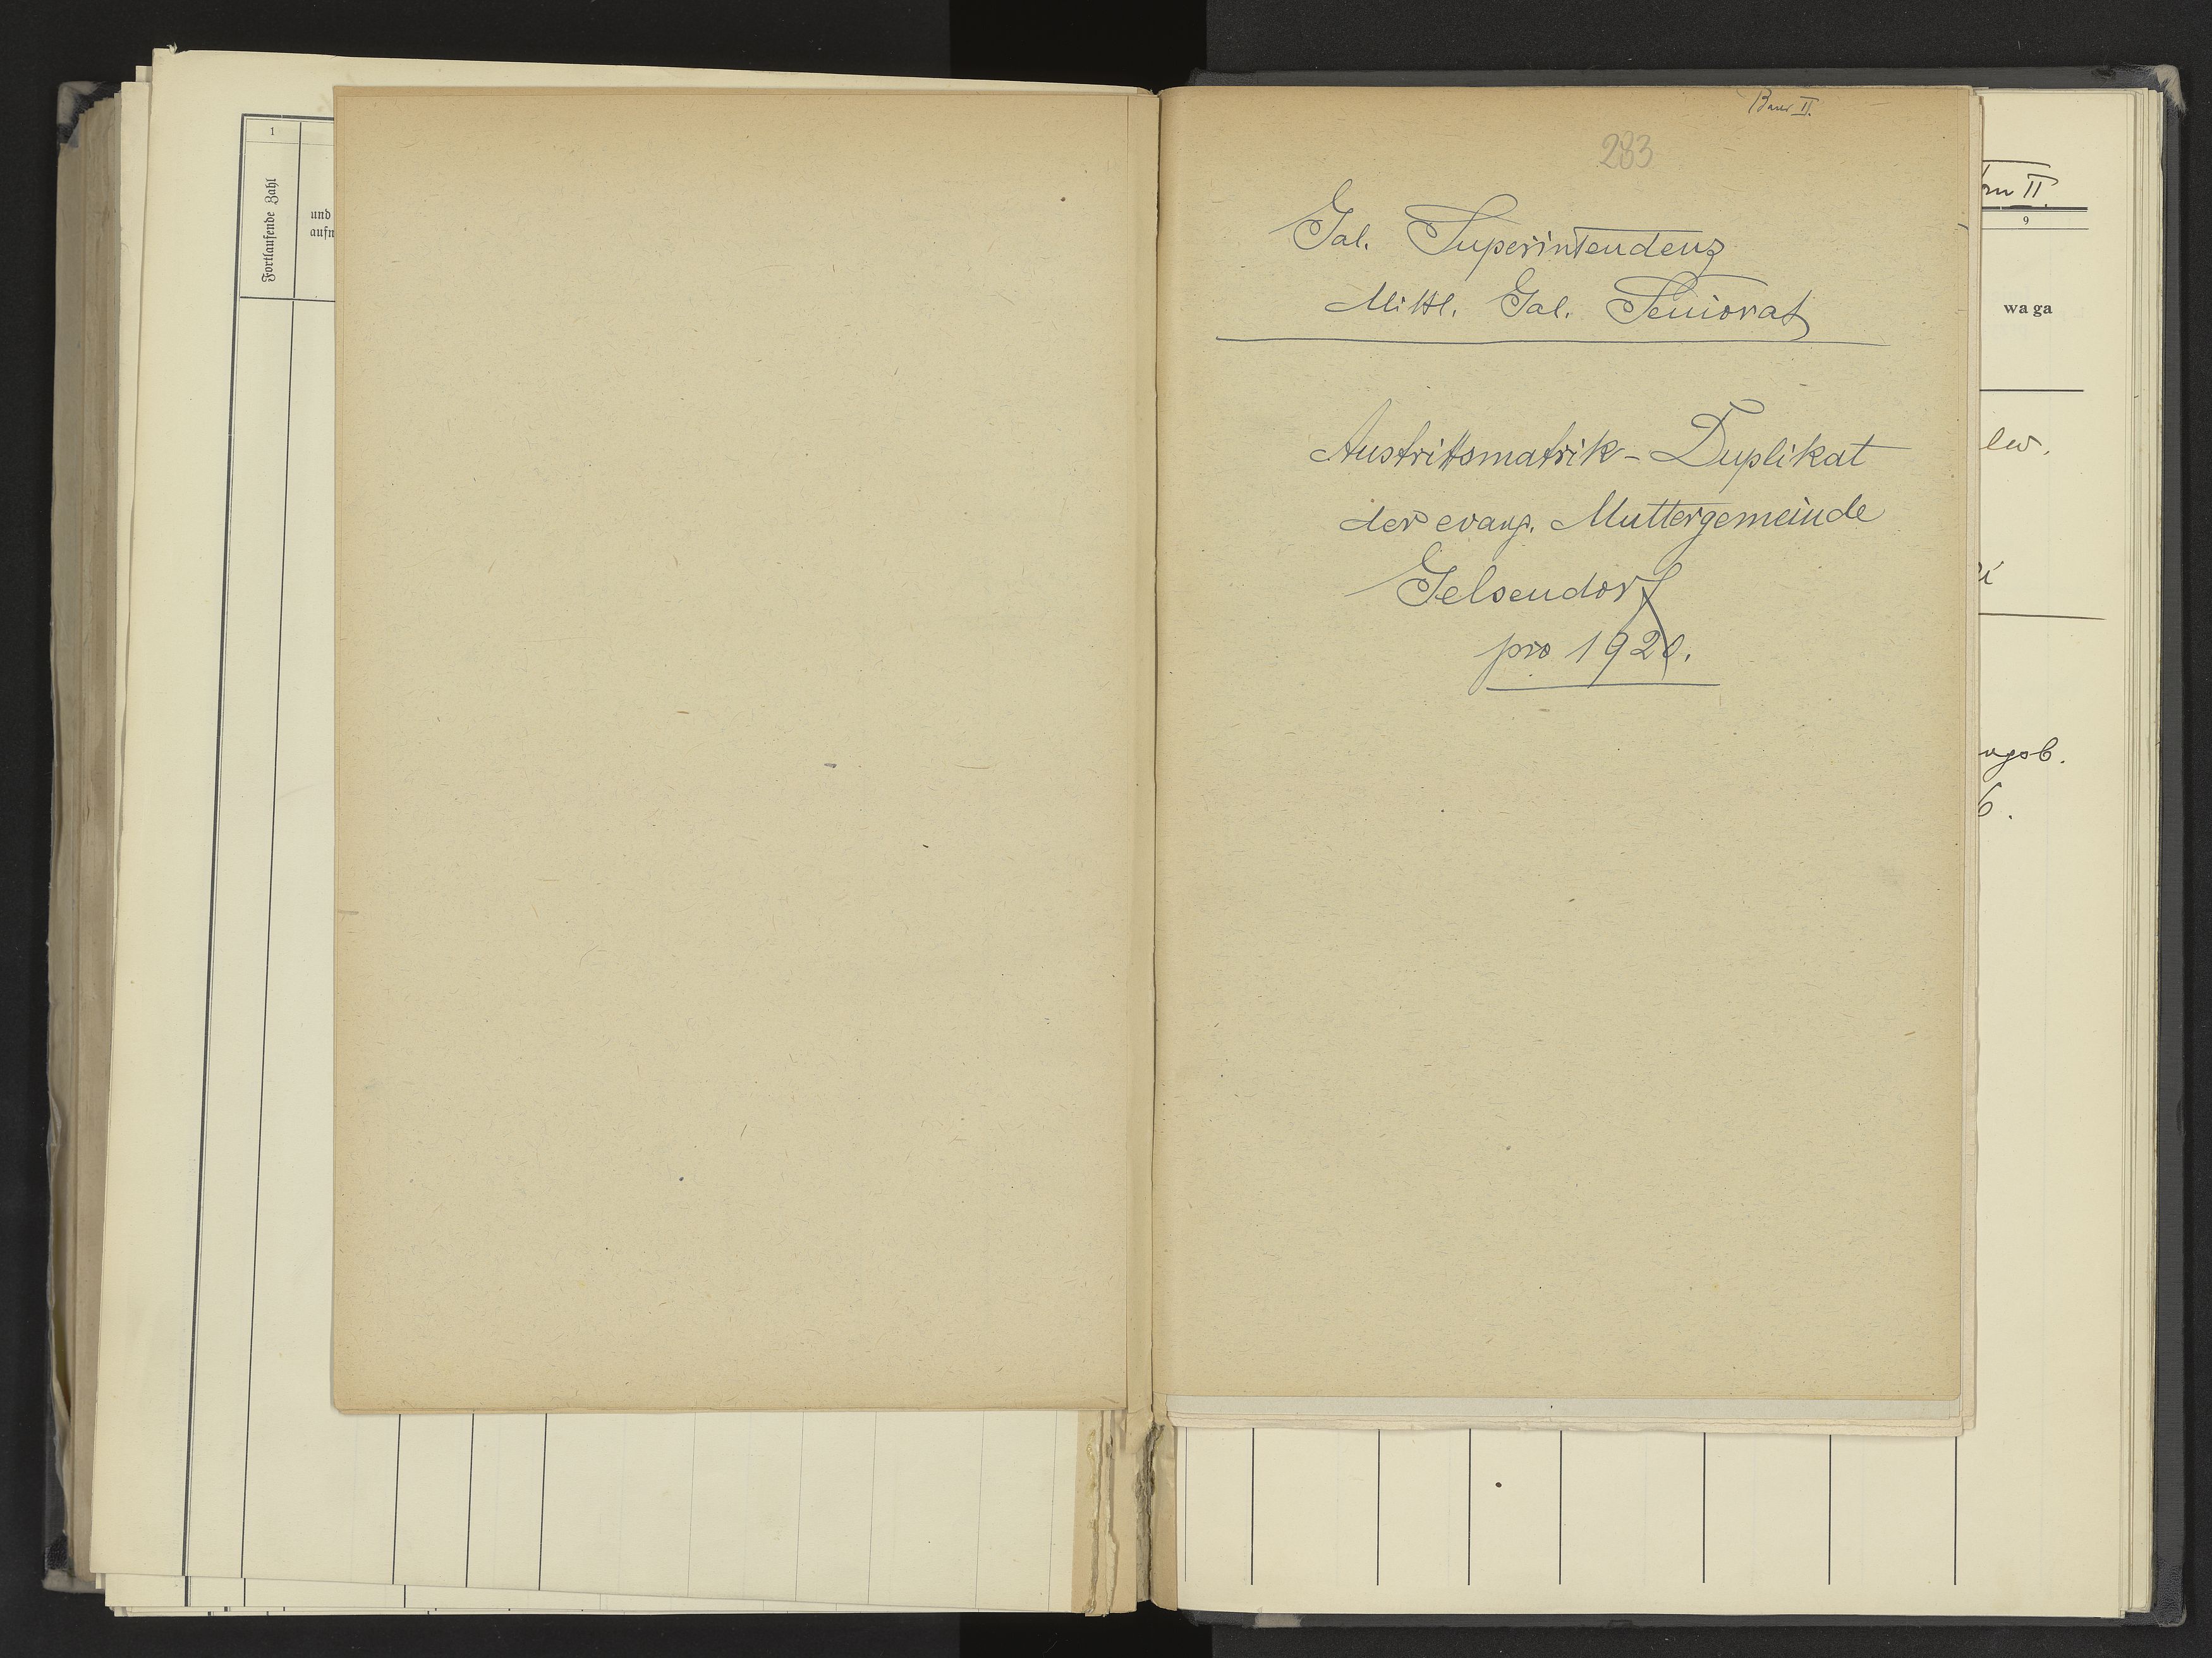 1
Fortlaufende Zahl
und
aufn
283
Gal. Superintendenz
Mittl. Gal. Seniorat
Austrittsmatrik - Duplikat
der evang. Muttergemeinde
Gelsendorf
pro 1920.
II.
9
waga